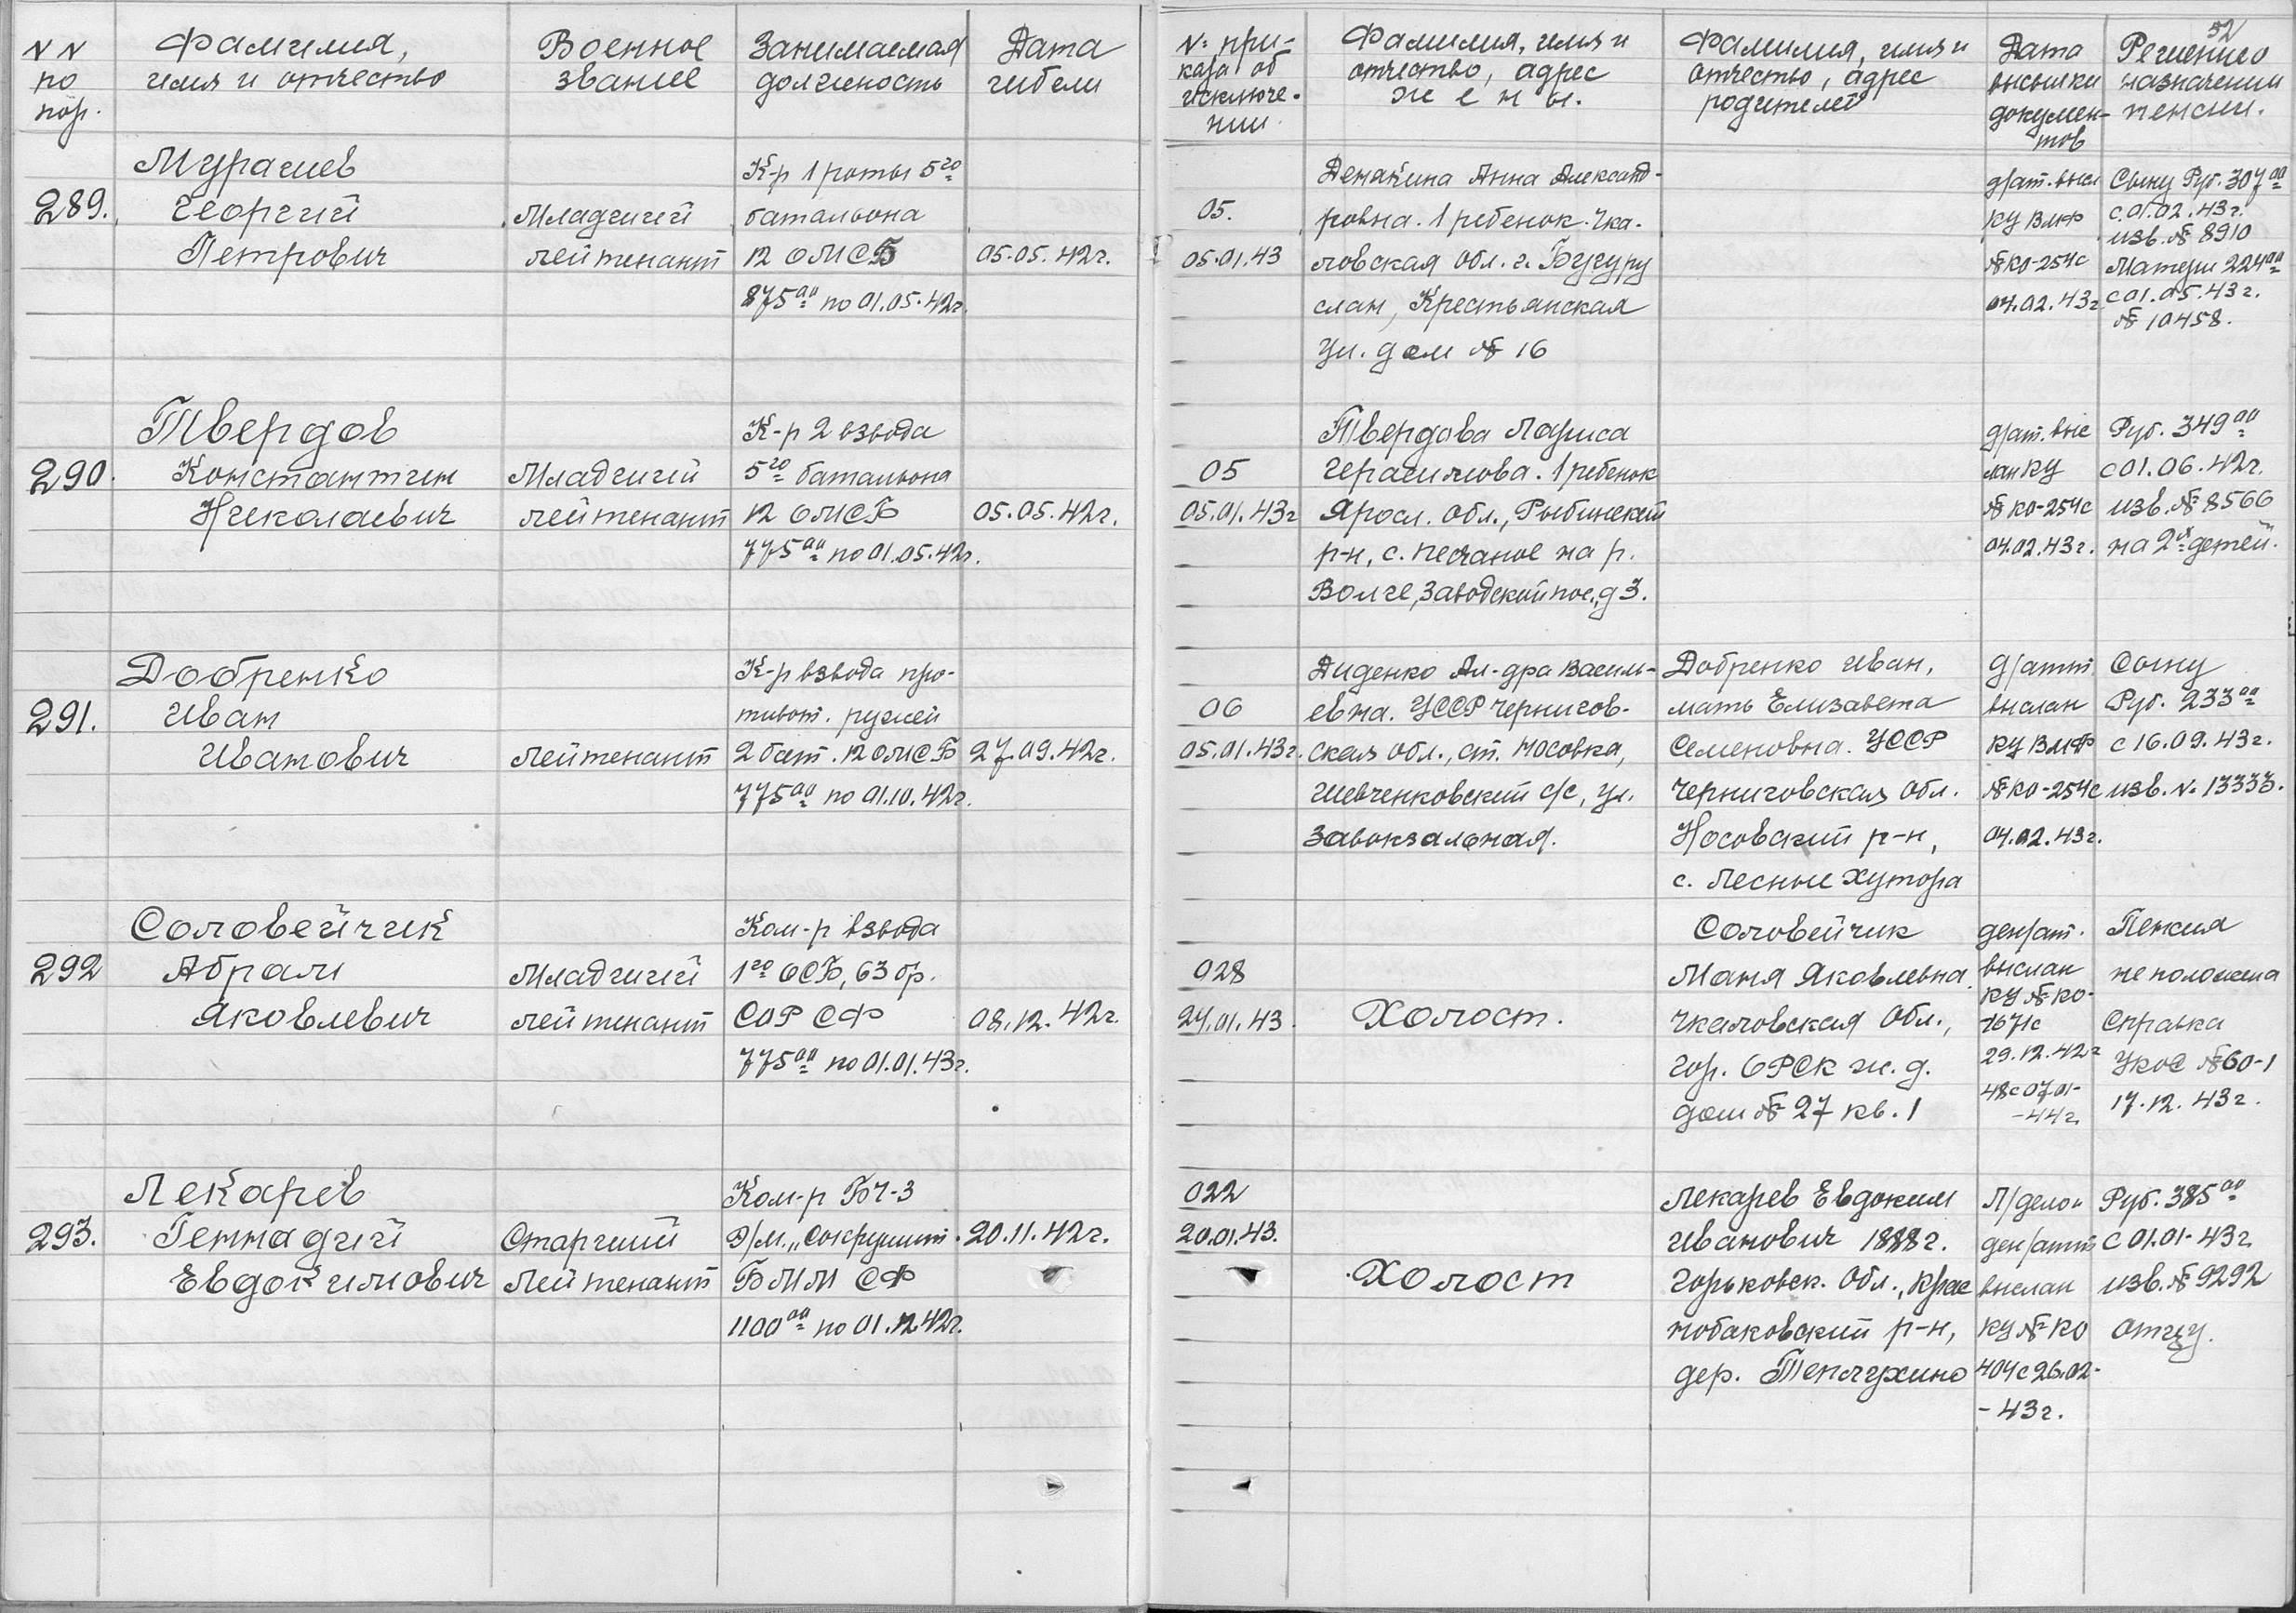 52
N N по пор.
Фамилия, имя и отчество
Военное звание
Занимаемая должность
Дата гибели
№ приказа об исключении
Фамилия, имя и отчество, адрес жены.
Фамилия, имя и отчество, адрес родителей
Дата высылки документов
Решение о назначении пенсии.
289.
Мурашев
Георгий
Петрович
Младший
лейтенант
К-р 1 роты 5го
батальона
12 ОМСБ
875 00 по 01.05.42г.
05.05.42г.
05.
05.01.43
Демакина Анна Александ-
ровна. 1 ребенок. Чка-
ловская обл. г. Бугуру
слан, Крестьянская
ул. дом № 16
д/ат. высл
КУ ВМФ
№КО-254с
04.02.43г
Сыну Руб. 307 00
с.01.02.43г.
изв. № 8910
Матери 224 00
с 01.05.43г.
№ 10458.
290.
Твердов
Константин
Николаевич
Младший
лейтенант
К-р 2 взвода
5го батальона
12 ОМСБ
775 00 по 01.05.42г.
05.05.42г.
05
05.01.43г
Твердова Лариса
Герасимова. 1 ребенок
Яросл. обл., Рыбинский
р-н, с. Песчаное на р.
Волге, Заводской пос., д 3.
д/ат. выс
лан КУ
№ КО-254с
04.02.43г.
Руб. 349 00
с 01.06.42г.
изв. № 8566
на 2х детей.
291.
Добренко
Иван
Иванович
лейтенант
К-р взвода про-
тивот. ружей
2 бат. 12 ОМСБ
775 00 по 01.10.42г.
27.09.42г.
06
05.01.43г.
Диденко Ал-дра Василь-
евна. УССР Чернигов-
ская обл., ст. Носовка,
Шевченковский с/с, ул.
Завокзальная.
Добренко Иван,
мать Елизавета
Семеновна. УССР
Черниговская обл.
Носовский р-н,
с. Лесные Хутора
д/атт
выслан
КУ ВМФ
№КО-254с
04.02.43г.
Сыну
Руб. 233 00
с 16.09.43г.
изв. № 13333.
292
Соловейчик
Абрам
Яковлевич
Младший
лейтенант
Ком-р взвода
1го ОСБ, 63 бр.
СОР СФ
775 00 по 01.01.43г.
08.12.42г.
028
24.01.43
Холост.
Соловейчик
Маня Яковлевна.
Чкаловская обл.,
гор. ОРСК ж.д.
дом № 27 кв. 1
ден/ат.
выслан
КУ № КО-
-1671с
29.12.42г
48с 07 01-
-44г.
Пенсия
не положена
Справка
УКОС № 60-1
17.12.43г.
293.
Лекарев
Геннадий
Евдокимович
Старший
лейтенант
Ком-р БЧ-3
Э/М. „Сокрушит.
БММ СФ
1100 00 по 01.12.42г.
20.11.42г.
022
20.01.43.
Холост
Лекарев Евдоким
Иванович 1888г.
Горьковск. обл., Крас
нобаковский р-н,
дер. Теплухино
Л/дело и
ден/атт
выслан
КУ № КО
404с 26.02-
-43г.
Руб. 385 00
с 01.01-43г
изв. № 9292
отцу.